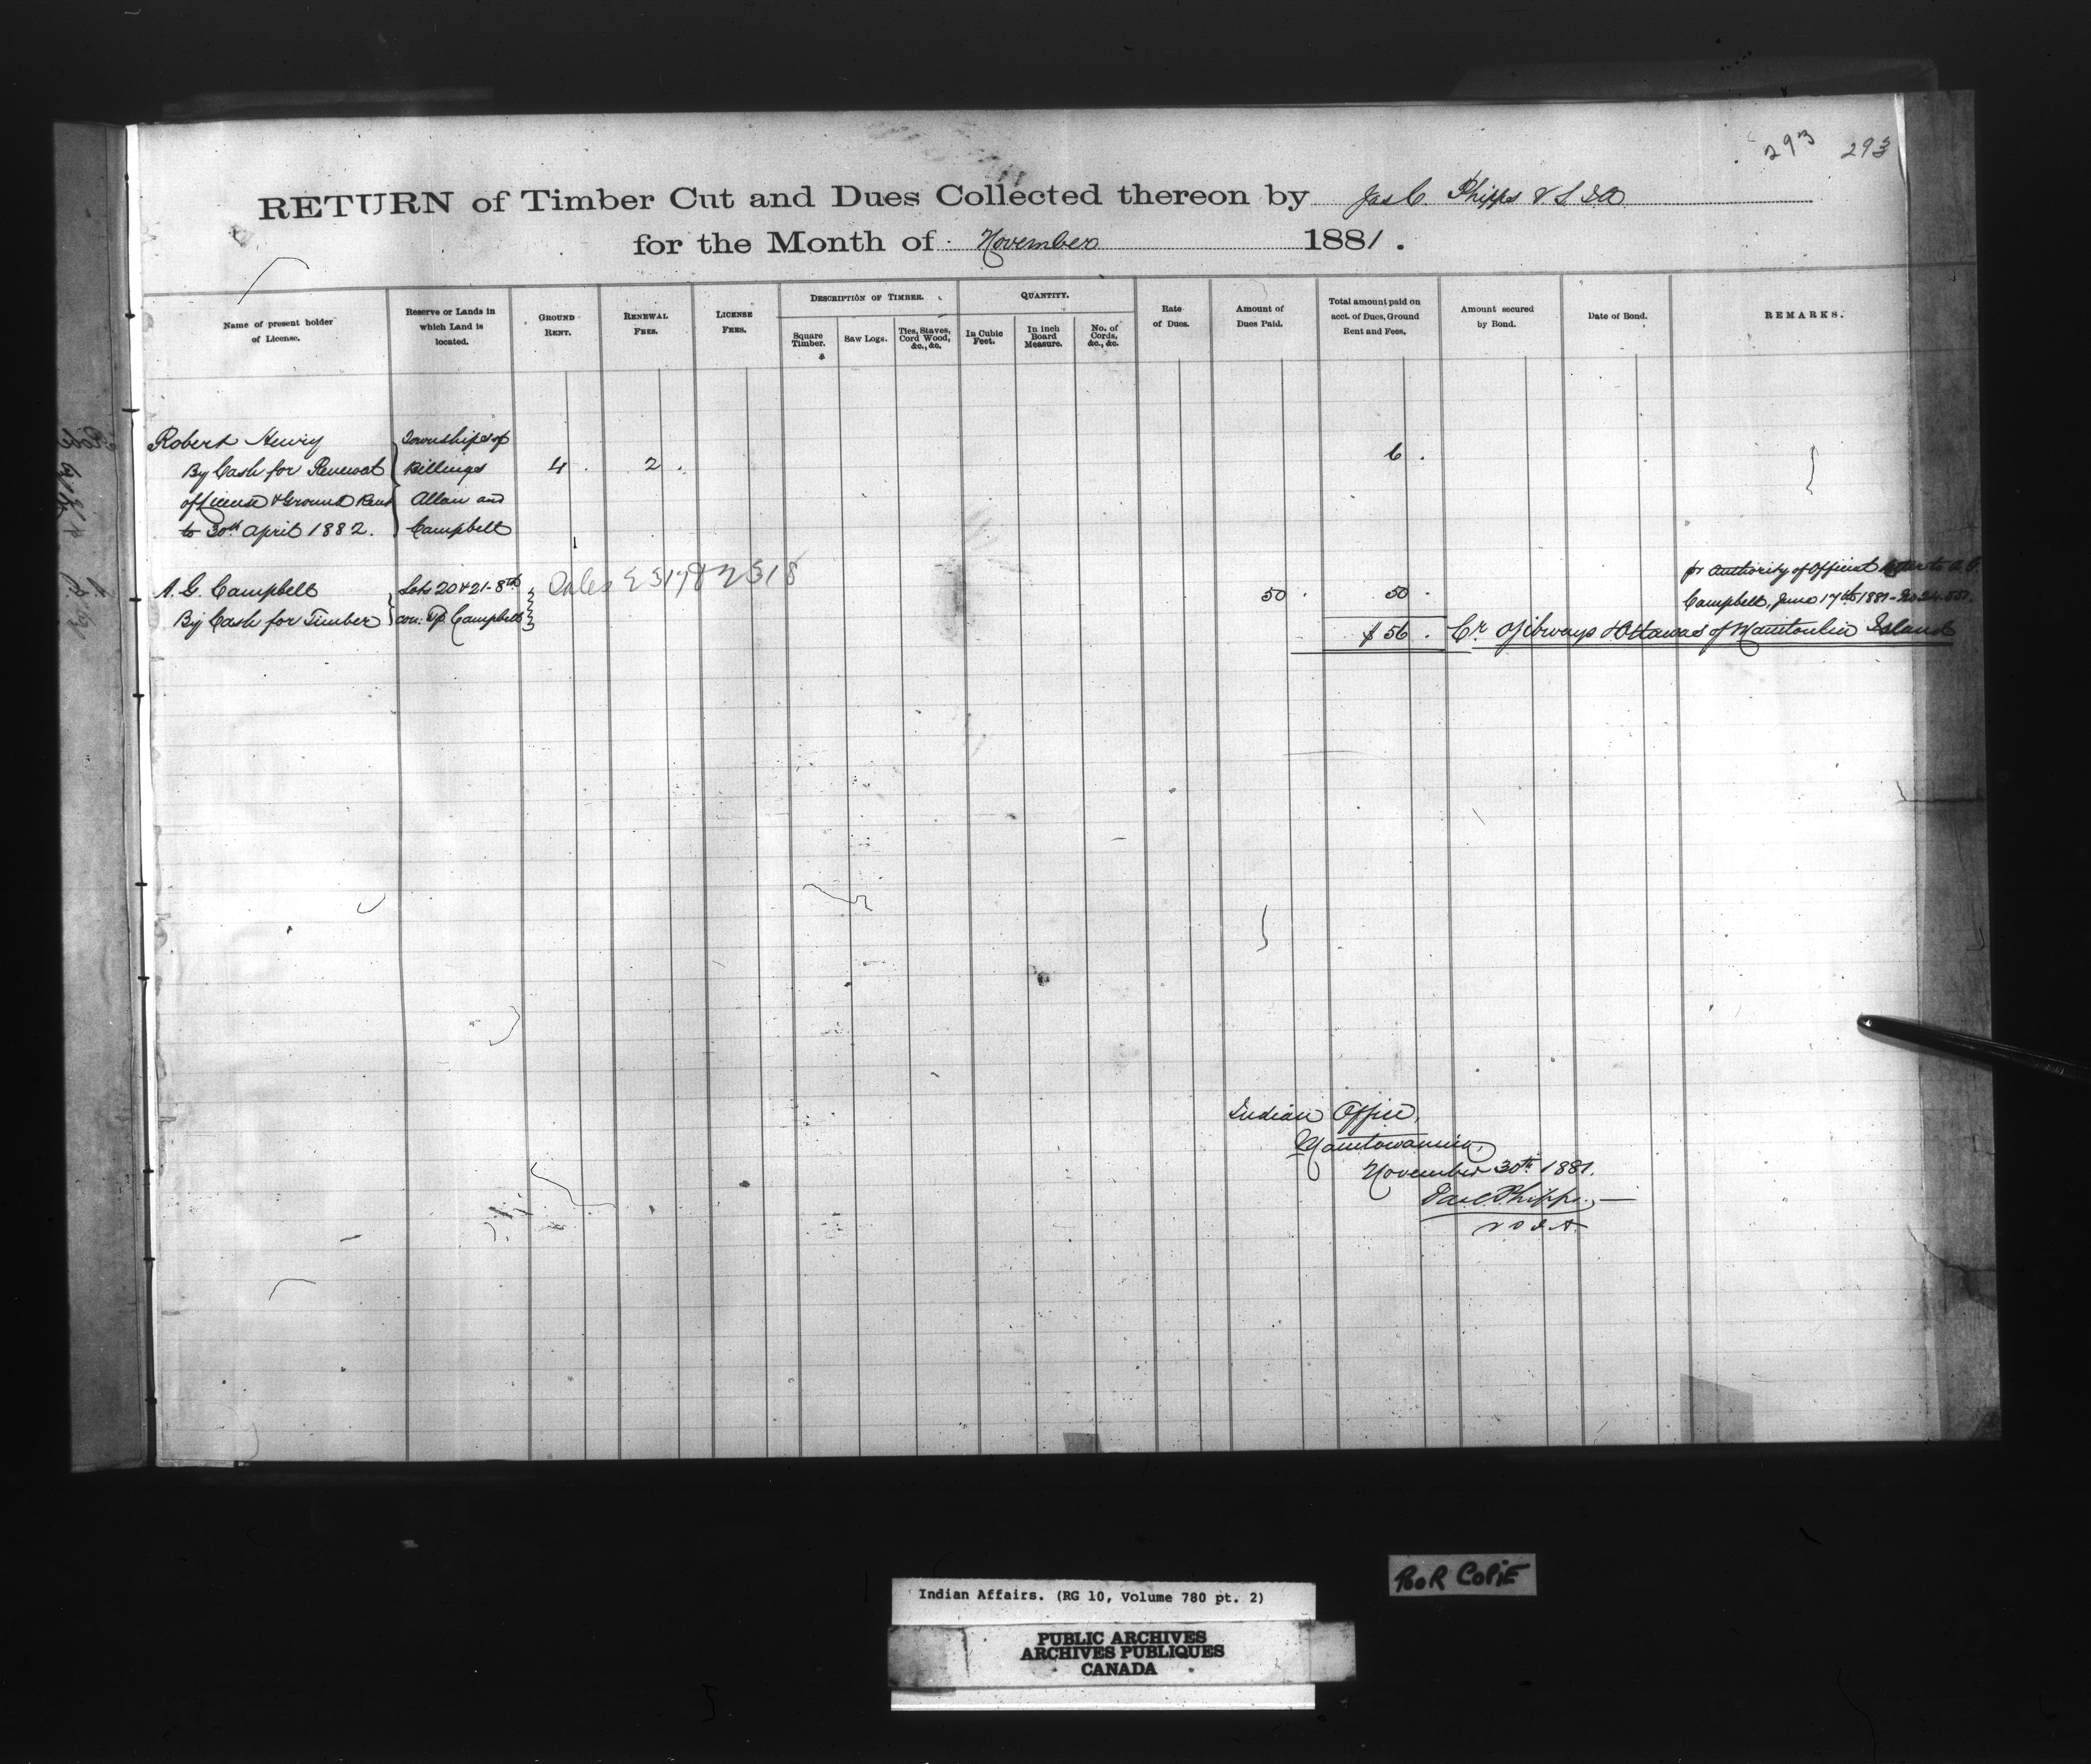 293 293
RETURN of Timber Cut and Dues Collected thereon by Jas C. Phipps V.S.I.A
for the Month of November 1881.
Name of present holder of License.
Reserve or Lands in which Land is located.
GROUND RENT.
RENEWAL FEES.
LICENSE FEES.
DESCRIPTION OF TIMBER.
Square Timber.
Saw Logs.
Ties, Staves, Cord Wood, &c., &c.
QUANTITY.
In Cubic Feet.
In inch Board Measure.
No. of Cords, &c., &c.
Rate of Dues.
Amount of Dues Paid.
Total amount paid on acct. of Dues, Ground Rent and Fees.
Amount secured by Bond.
Date of Bond.
REMARKS.
Robert Henry Townships of
By Cash for Renewal Billings 4 . 2 . 6 .
of License & Ground Rent Allan and
to 30th April 1882. Campbell
A. G. Campbell Lots 20 & 21 - 8th Sales 2317 & 2318 50 . 50 . pr Authority of Official Letter to A. G.
By Cash for Timber con. Tp. Campbell Campbell, June 17th 1881 - No
$56 . Cr Ojibways & Ottawas of Manitoulin Island
Indian Office,
Manitowaning,
November 30th 1881.
Jas C Phipps
V S I A
POOR COPIE
Indian Affairs. (RG 10, Volume 780 pt. 2)
PUBLIC ARCHIVES
ARCHIVES PUBLIQUES
CANADA